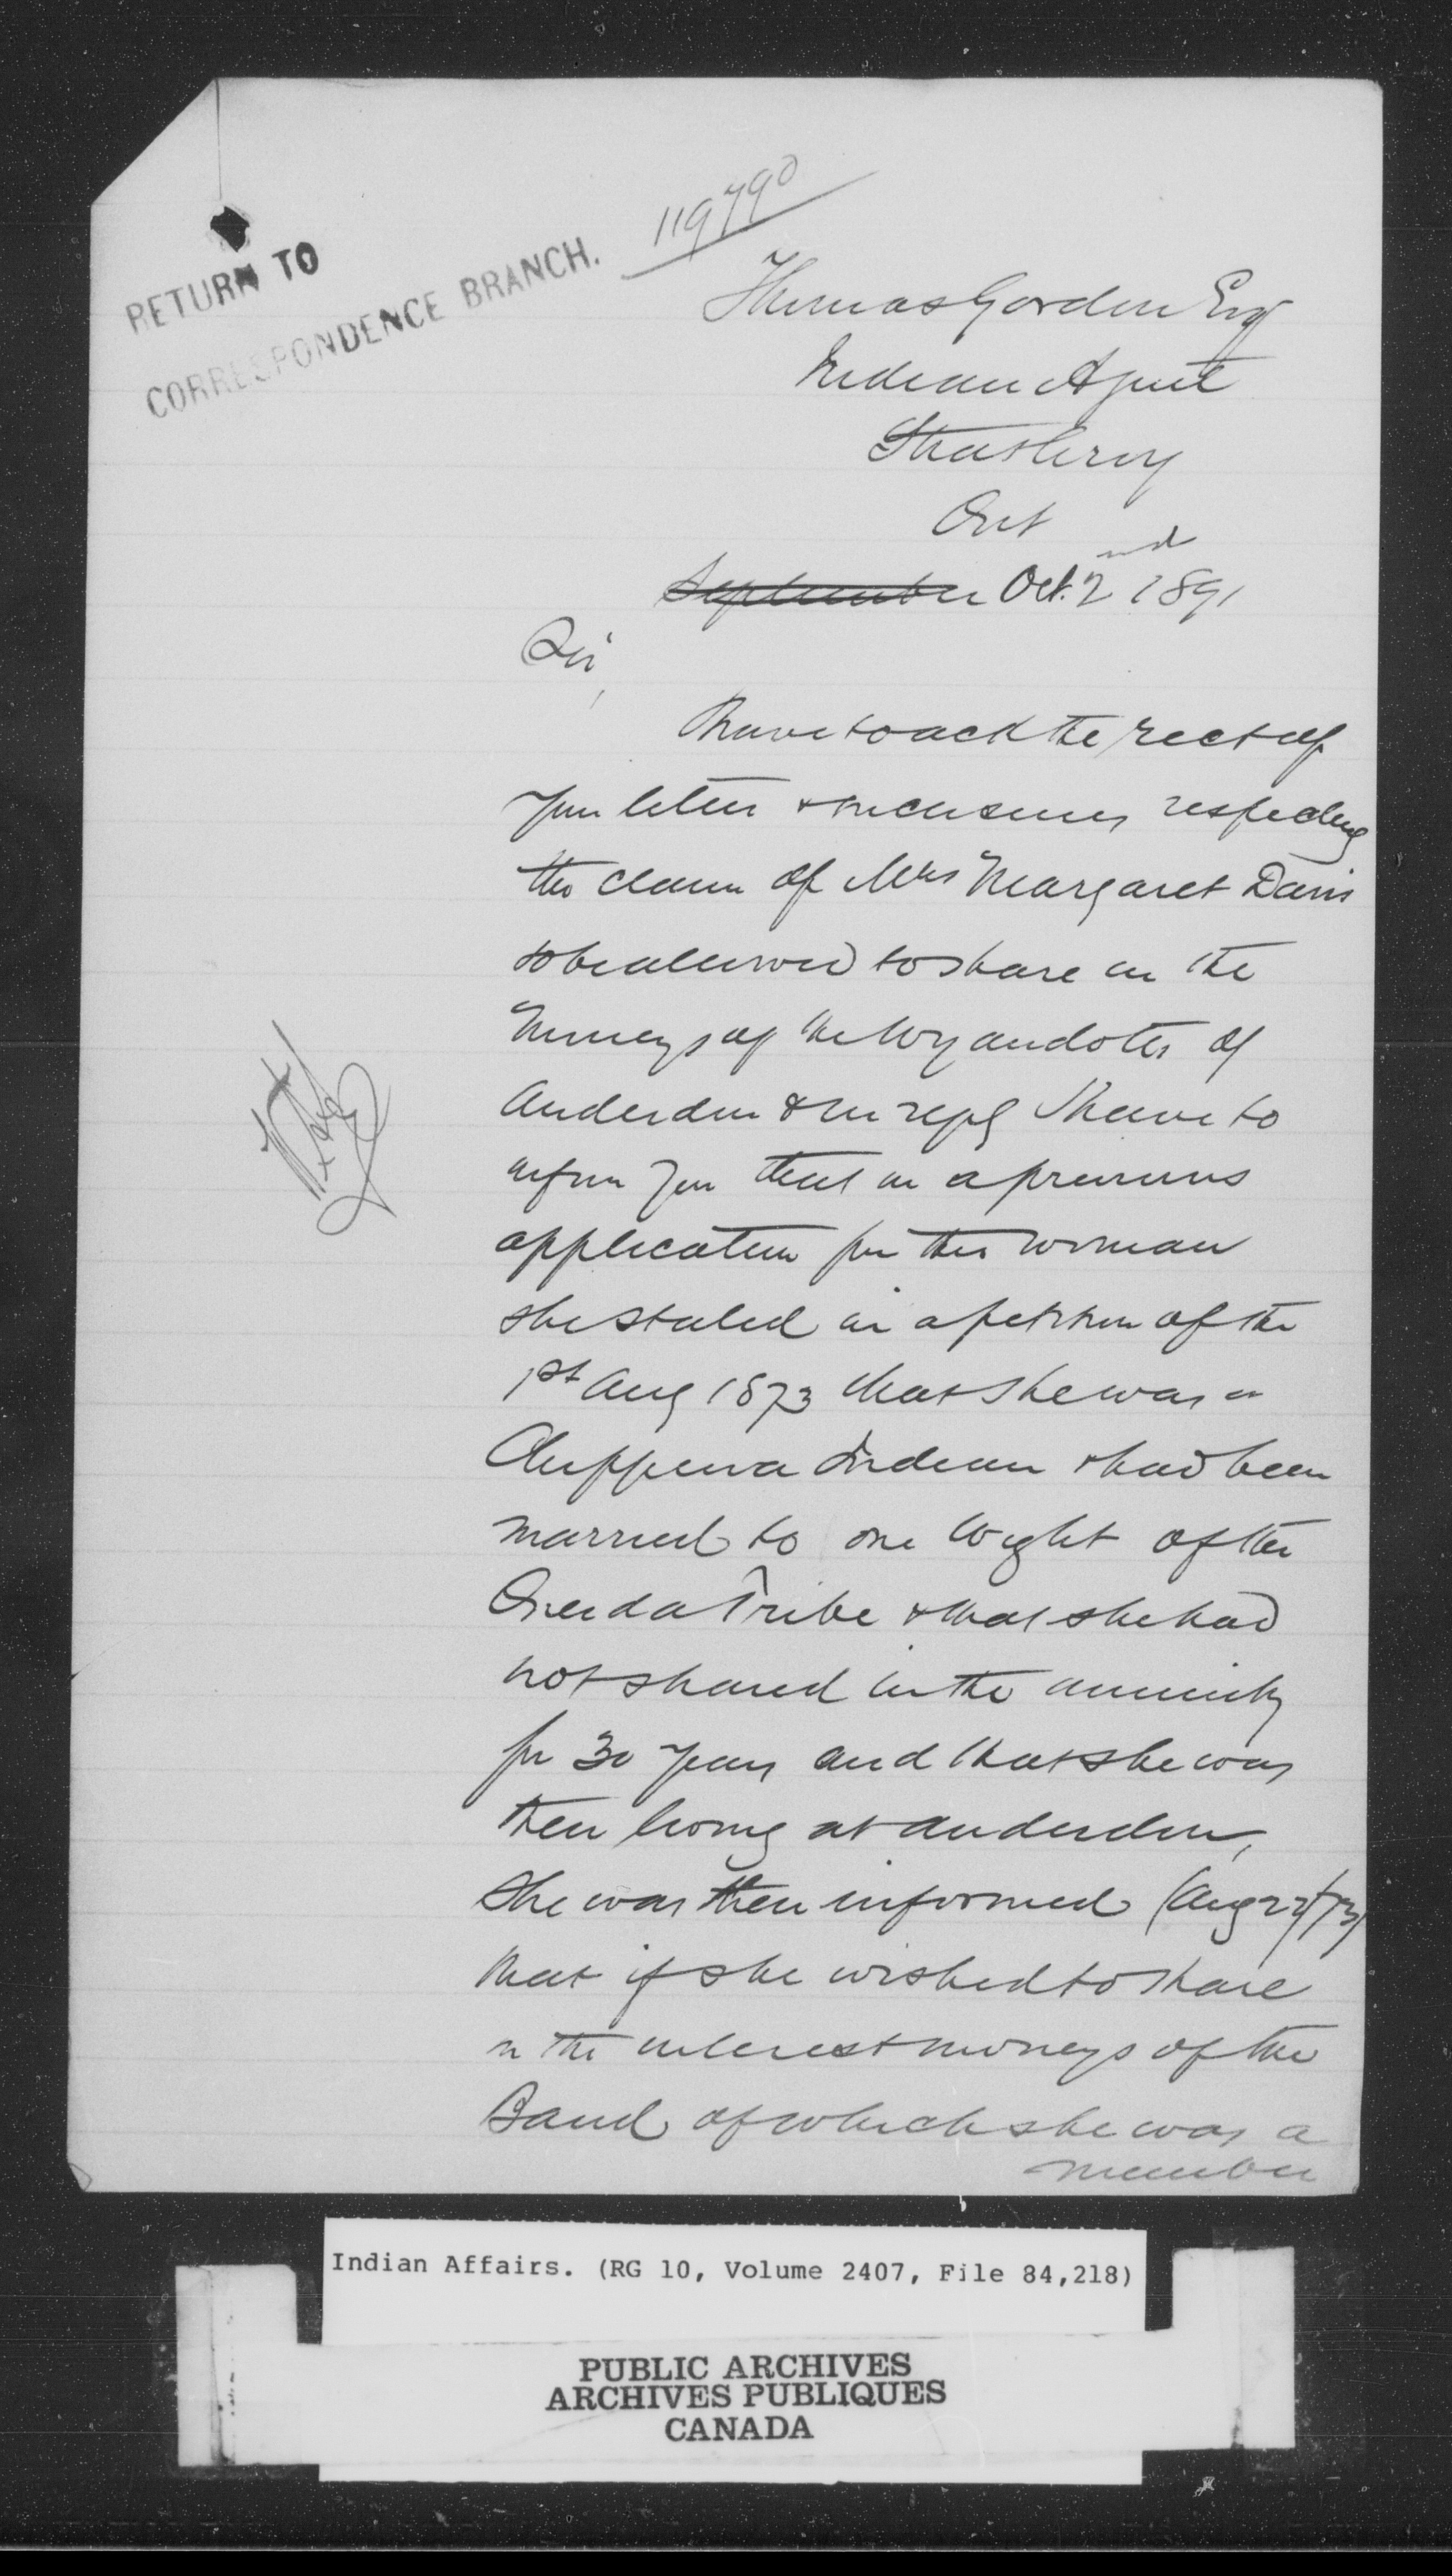 119790
RETURN TO
CORRESPONDENCE BRANCH.
Thomas Gordon Esq
Indian Agent
Strathroy
Ont
September Oct. 2nd 1891
Sir,
I have to ack the rect of
your letter & enclosures respecting
the claim of Mrs Margaret Davis
to be allowed to share in the
moneys of the Wyandotes of
Anderdon & in reply I have to
inform you that in a previous
application for this woman
she stated in a petition of the
1st Aug 1873 that she was a
Chippewa Indian & had been
married to one Wight of the
Oneida Tribe & that she had
not shared in the annuity
for 30 years and that she was
then living at Anderdon,
She was then informed (Aug 22/73)
that if she wished to share
in the interest moneys of the
Band of which she was a
member
Indian Affairs. (RG 10, Volume 2407, File 84,218)
PUBLIC ARCHIVES
ARCHIVES PUBLIQUES
CANADA